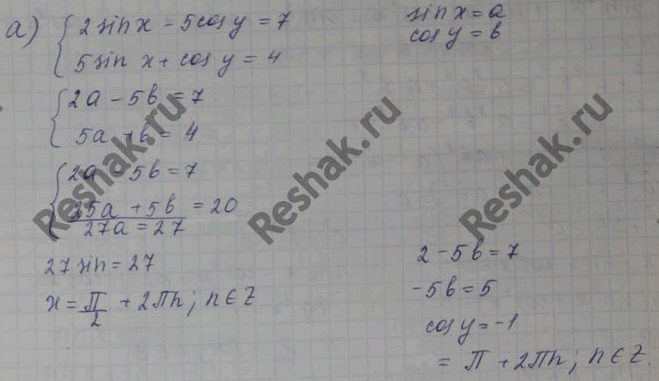 а) { 2 sin x - 5 cos y = 7
5 sin x + cos y = 4
sin x = a
cos y = b
{ 2a - 5b = 7
5a + b = 4
{ 2a - 5b = 7
25a + 5b = 20
27a = 27
27 sin = 27
x = П/2 + 2Пn; n ∈ Z
2 - 5b = 7
-5b = 5
cos y = -1
= П + 2Пn; n ∈ Z.
Reshak.ru
Reshak.ru
Reshak.ru